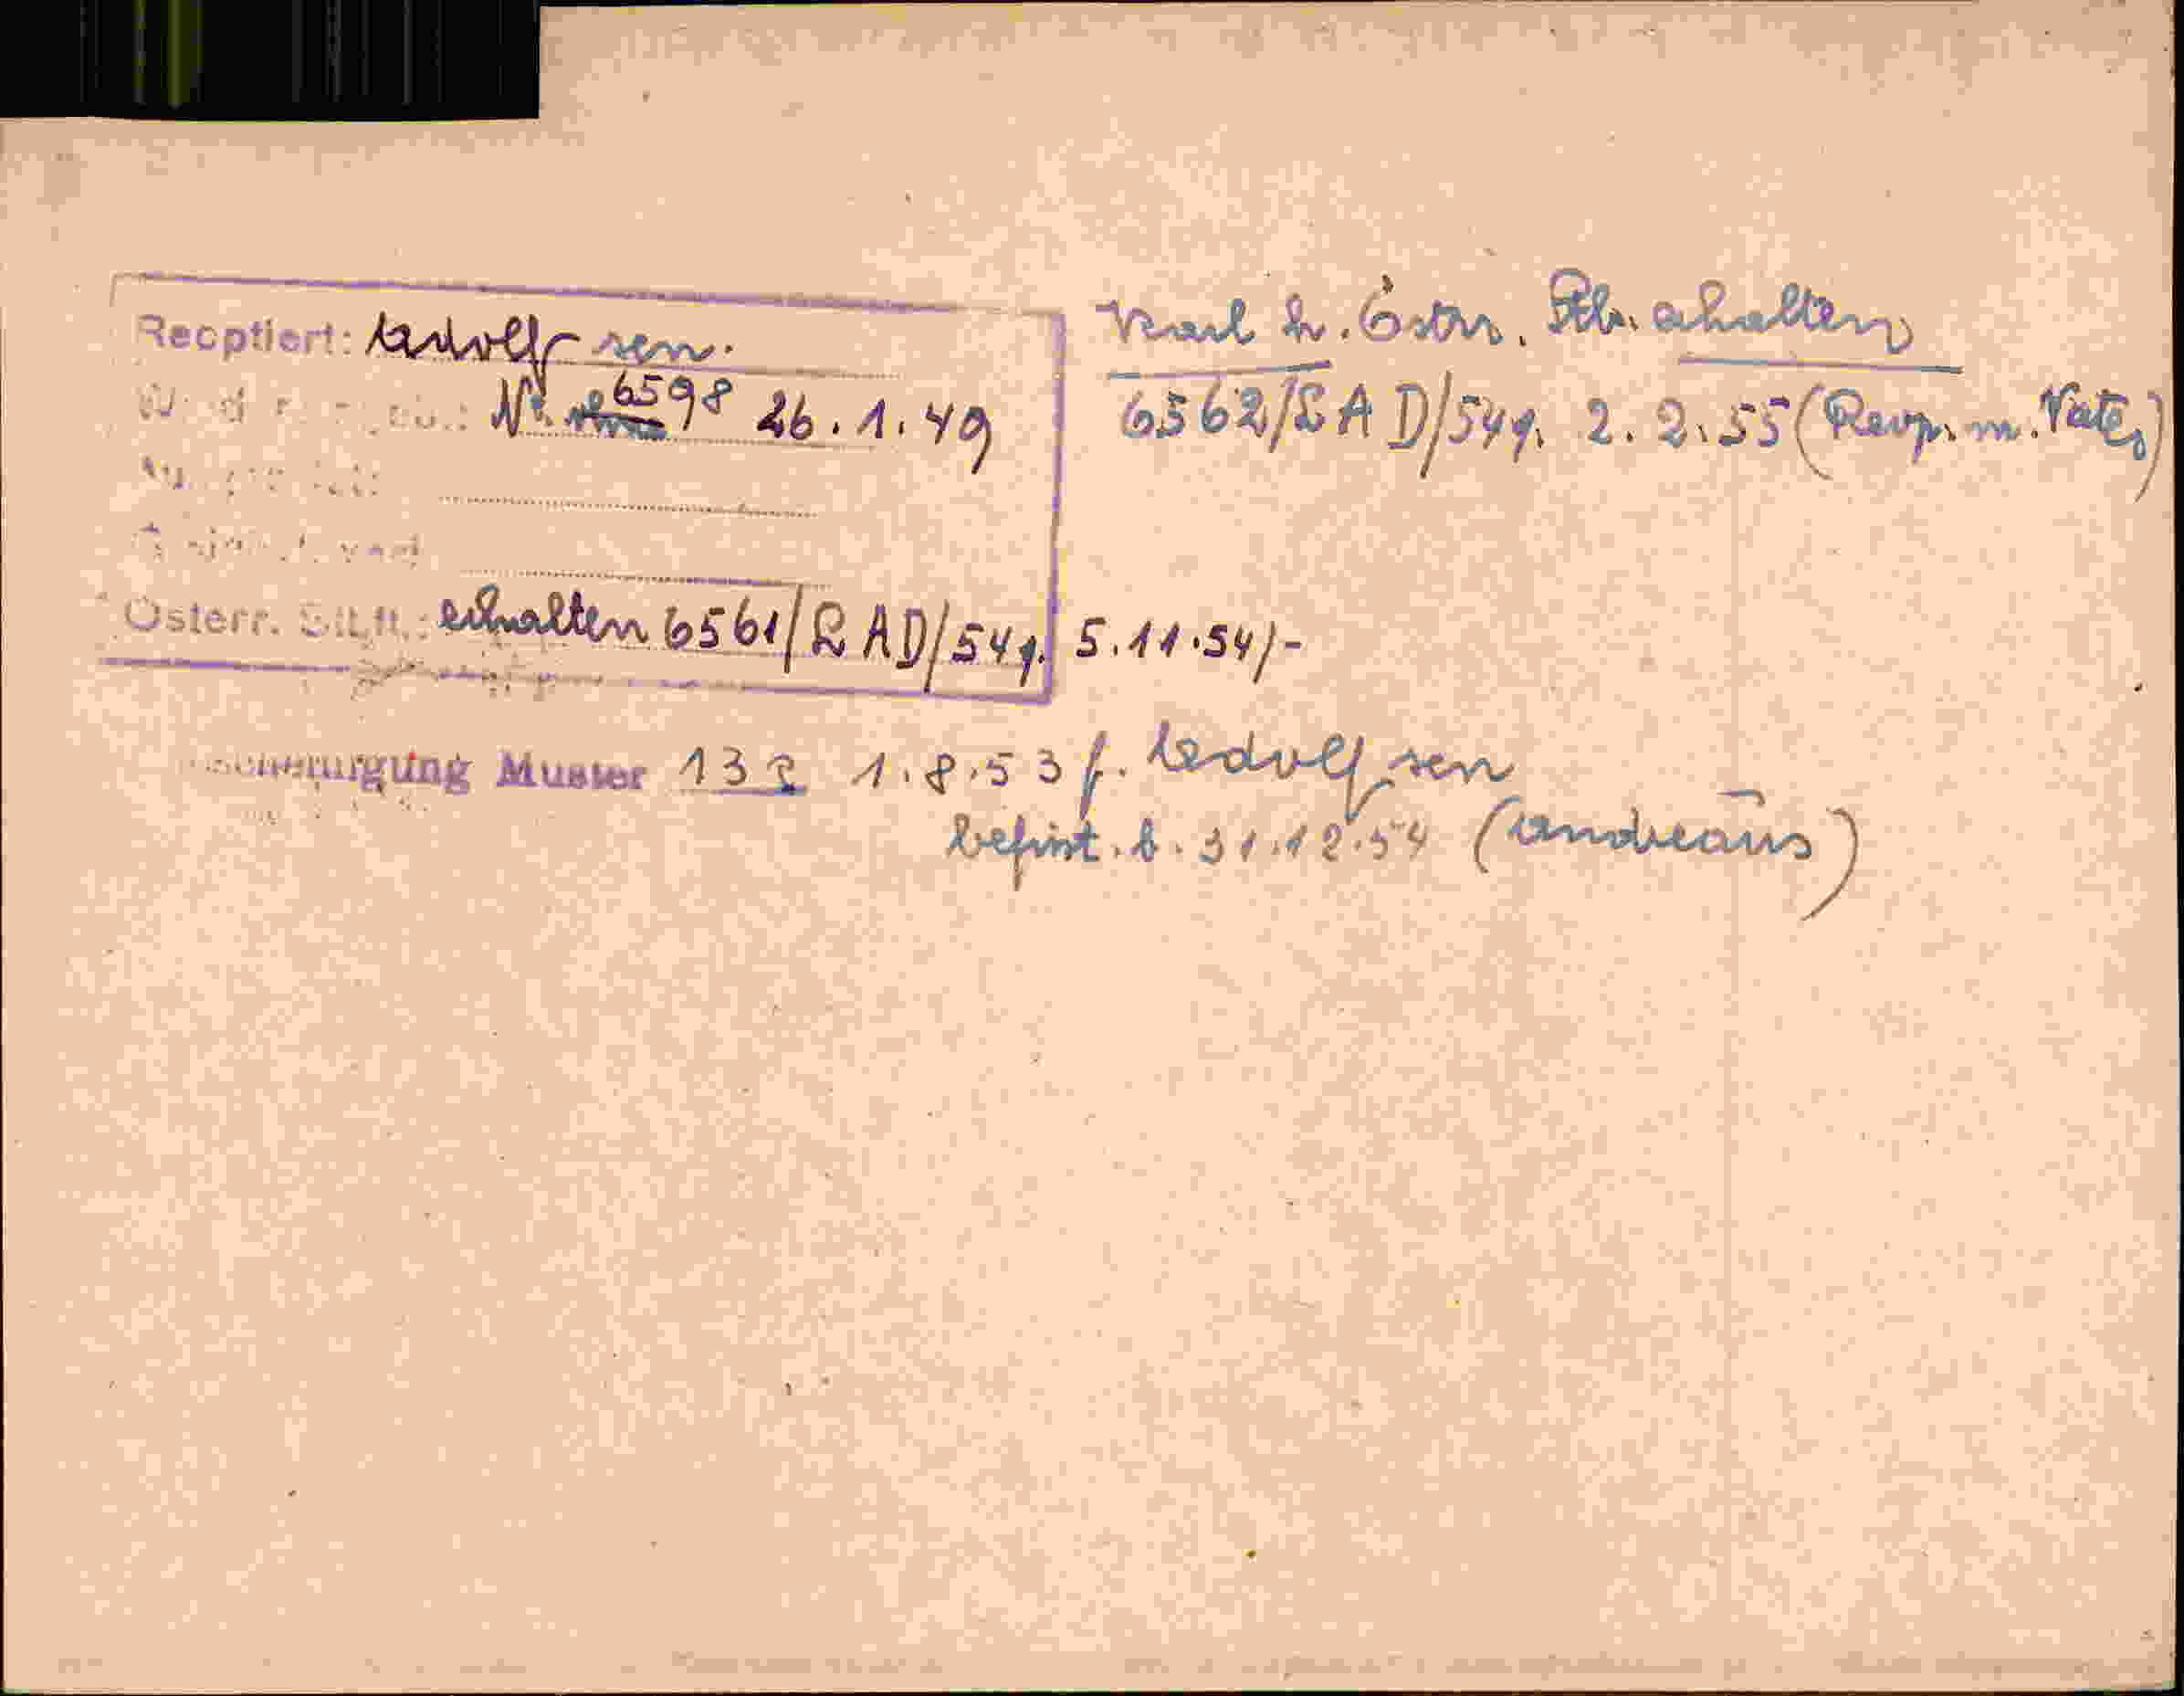 Reoptiert: Adolf sen.
Nº. 6598 26.1.49
Österr. Stb.: erhalten 6561/LAD/54g. 5.11.54/-
Karl h. Östr. Stb. erhalten
6562/LAD/54g. 2.2.55 (Reop. m. Vater)
Muster 13 1.8.53 f. Adolf sen
befrist. b. 31.12.54 (Andreaus)